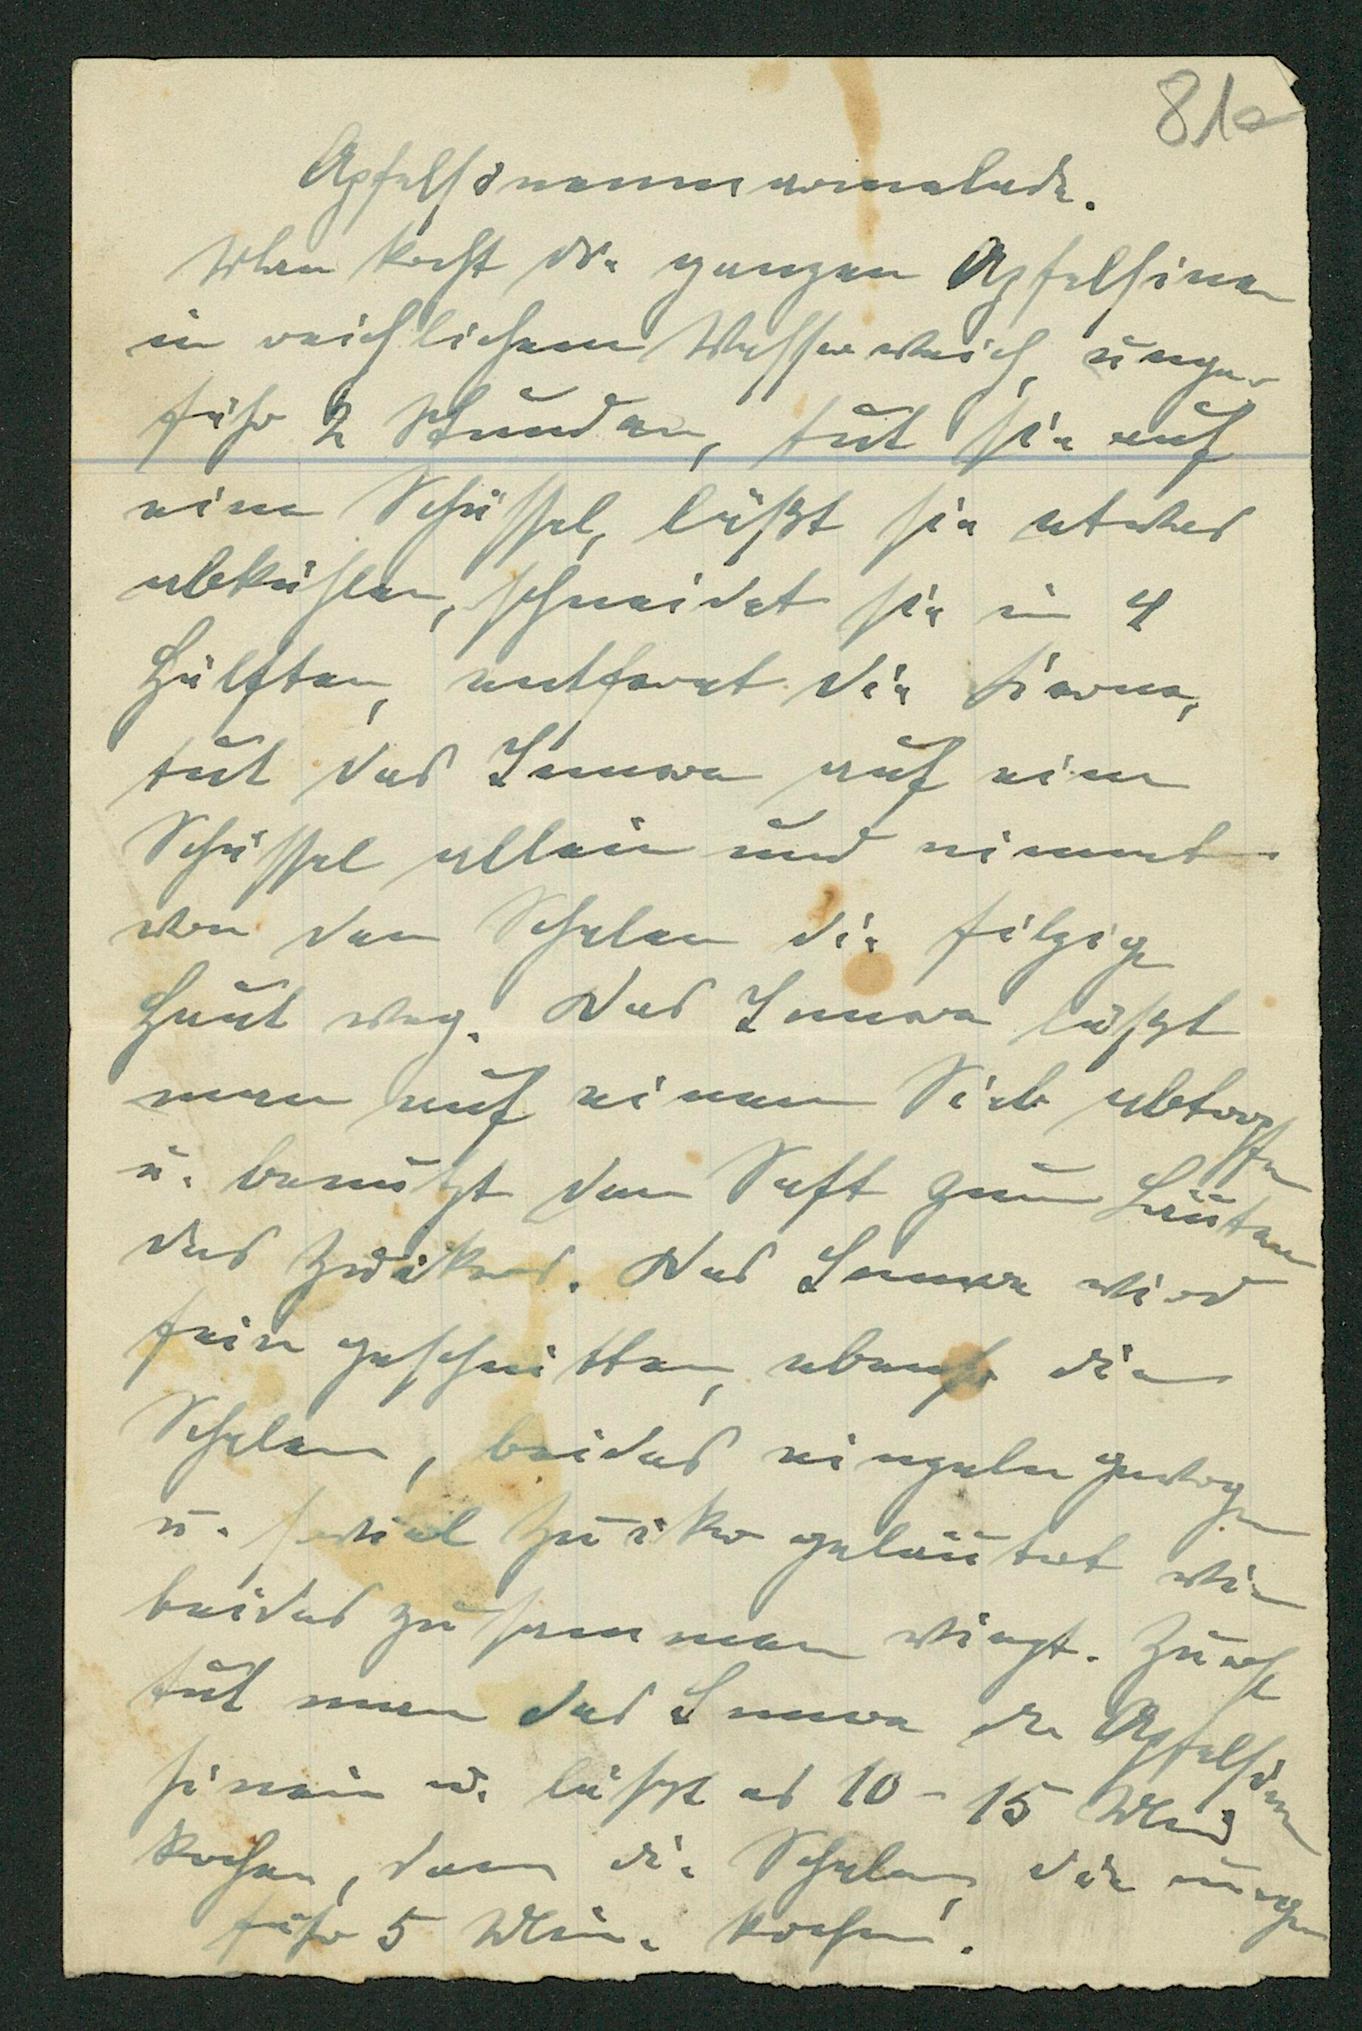 81a
Apfelsinenmarmelade.
Man kocht die ganzen Apfelsinen
in reichlichem Wasser weich, unge-
fähr 2 Stunden, tut sie auf
eine Schüssel, läßt sie etwas
abkühlen, schneidet sie in 4
Hälften, entfernt die Kerne,
tut das Innere auf eine
Schüssel allein und nimmt
von den Schalen die filzige
Haut weg. Das Innere läßt
man auf einem Sieb abtropfen
u. benutzt den Saft zum Läutern
des Zuckers. Das Innere wird
fein geschnitten, ebenso die
Schalen, beides einzeln gewogen
u. soviel Zucker geläutert wie
beides zusammen wiegt. Zuerst
tut man das Innere der Apfelsinen
hinein u. läßt es 10 - 15 Min
kochen, dann die Schalen, die unge
fähr 5 Min. kochen.